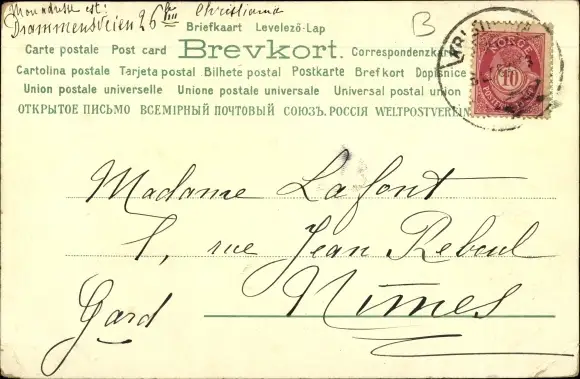 Mon adresse est: Christiania
Drammensveien 26 III
B
Briefkaart Levelező-Lap
Carte postale Post card Brevkort. Correspondenzkarte
Cartolina postale Tarjeta postal Bilhete postal Postkarte Brefkort Dopisnice
Union postale universelle Unione postale universale Universal postal union
ОТКРЫТОЕ ПИСЬМО ВСЕМІРНЫЙ ПОЧТОВЫЙ СОЮЗЪ. РОССІЯ WELTPOSTVEREIN
NORGE
10
Madame Lafont
1, rue Jean Reboul
Nîmes
Gard